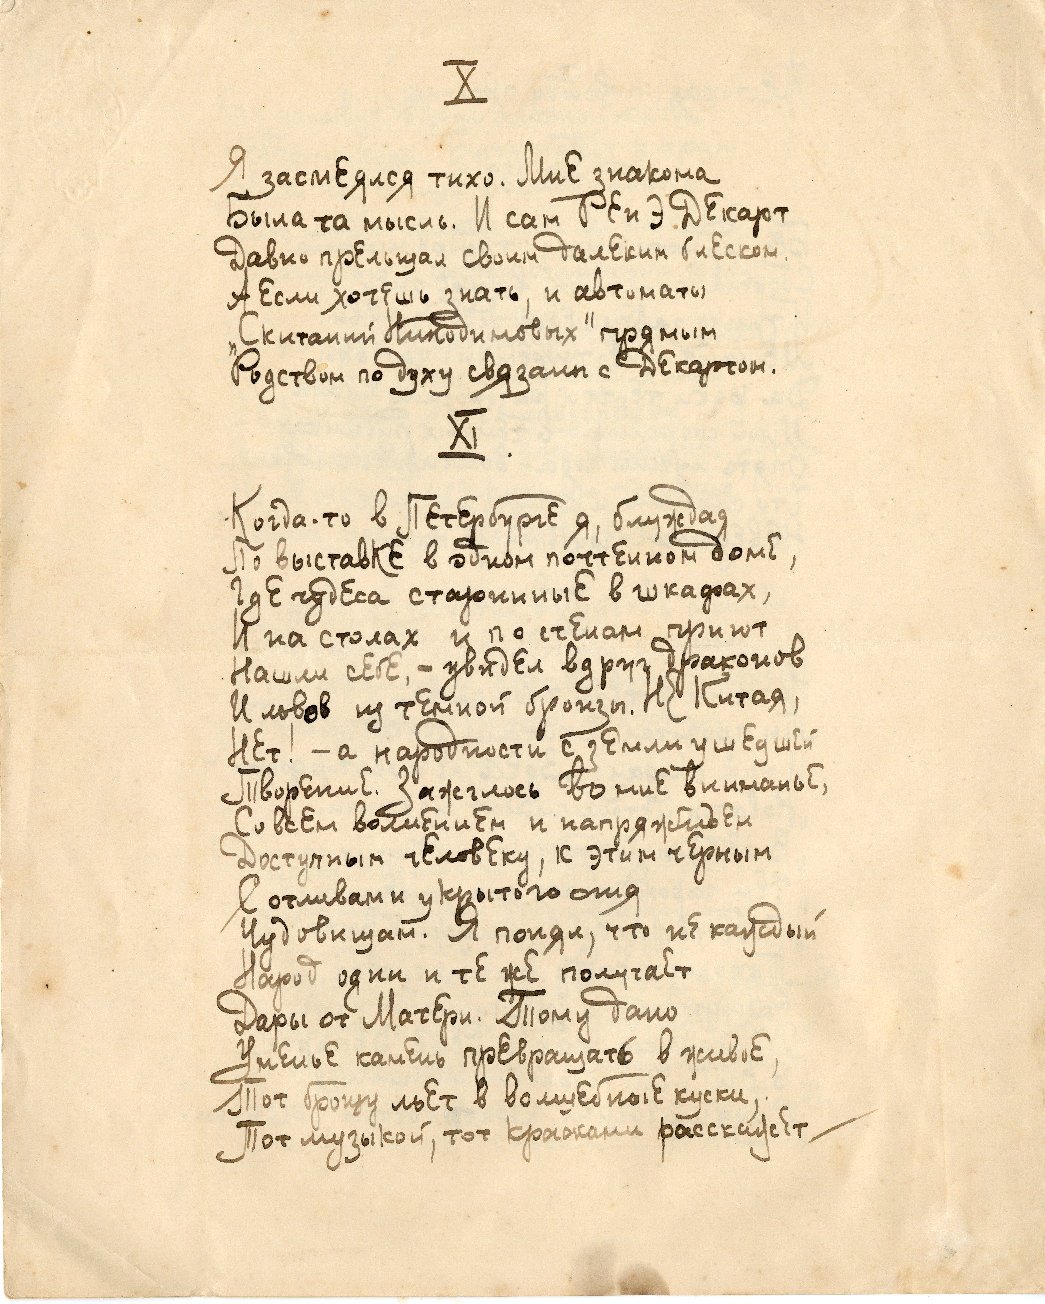 X
Я засмеялся тихо. Мне знакома
Была та мысль. И сам Ренэ Декарт
Давно прельщал своим далеким блеском.
А если хочешь знать, и автоматы
„Скитаний Никодимовых" прямым
Родством по духу связаны с Декартом.
XI.
Когда-то в Петербурге я, блуждая
По выставке в одном почтенном доме,
Где чудеса старинные в шкафах,
И на столах и по стенам приют
Нашли себе, – увидел вдруг драконов
И львов из темной бронзы. Не Китая,
Нет! – а народности с земли ушедшей
Творение. Зажглось во мне вниманье,
Со всем волнением и напряженьем
Доступным человеку, к этим черным
С отливами укрытого огня
Чудовищам. Я понял, что не каждый
Народ одни и те же получает
Дары от Матери. Тому дано
Уменье камень превращать в живое,
Тот бронзу льет в волшебные куски,
Тот музыкой, тот красками расскажет –